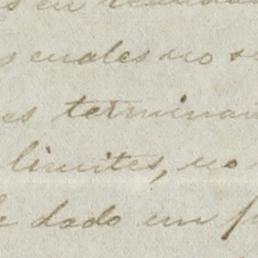 en
cuales no s
es terminan
limites, no
dado un